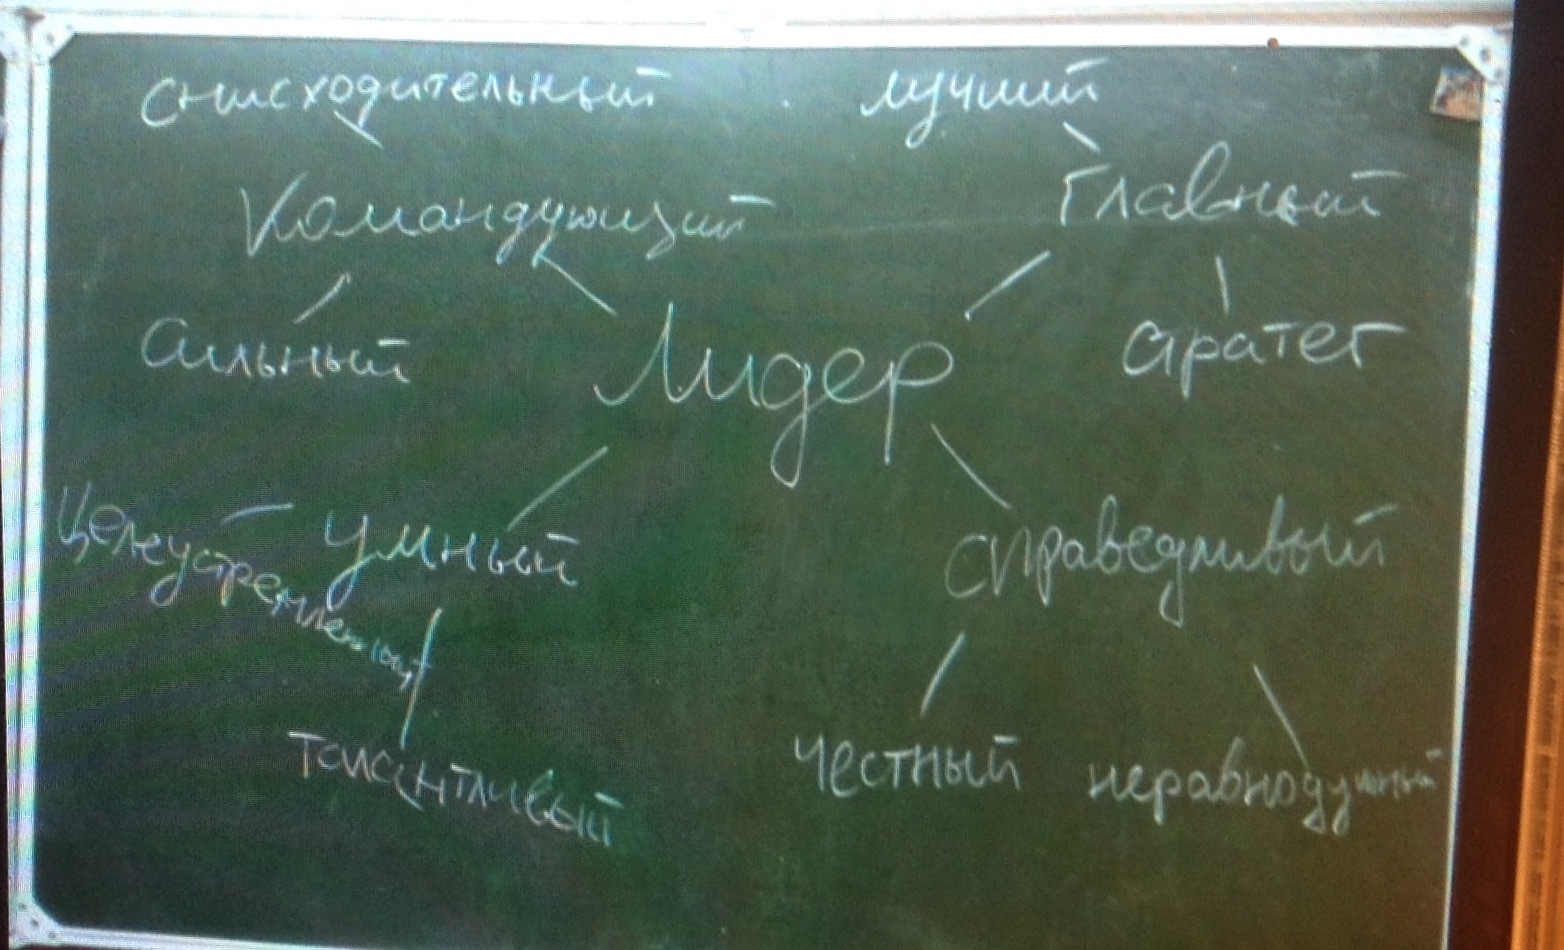 снисходительный лучший
Командующий Главный
Сильный Лидер стратег
Целеустремленный умный справедливый
Талантливый честный неравнодушный